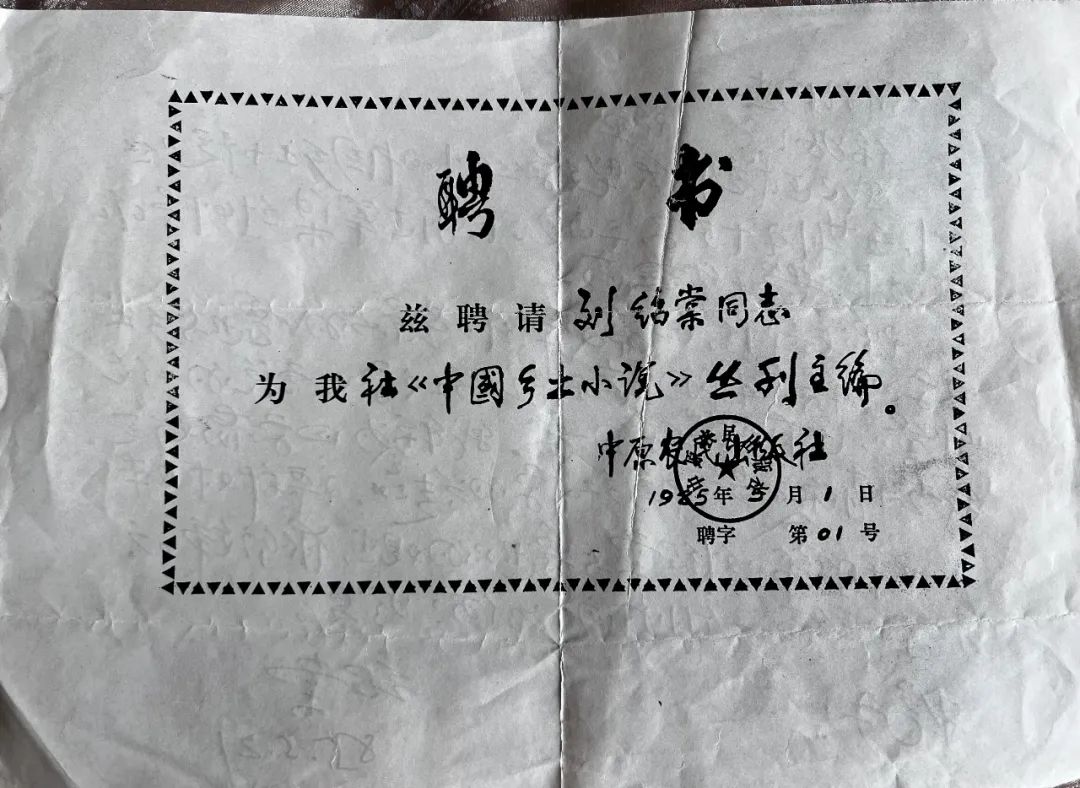 聘书
兹聘请刘绍棠同志
为我社《中國乡土小说》丛刊主编。
中原农民出版社
1985年5月1日
聘字 第01号